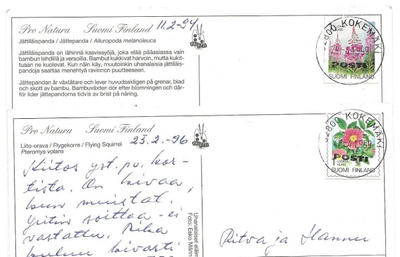 Pro Natura Suomi Finland
11.2-94
Jättiläispanda / Jättepanda / Ailuropoda melanoleuca
Jättiläispanda on lähinnä kasvissyöjä, joka elää pääasiassa vain
bambun lehdillä ja versoilla. Bambut kukkivat harvoin, mutta kukit-
tuaan ne kuolevat. Kun näin käy, muutoinkin uhanalaisia jättiläis-
pandoja saattaa menehtyä ravinnon puutteeseen.
Jättepandan är växtätare och lever huvudsakligen på grenar, blad
och skott av bambu. Bambuväxten dör efter blomningen och där-
för lider jättepandorna tidvis av brist på näring.
32800 KOKEMÄKI
POSTI
SUOMI FINLAND
Pro Natura Suomi Finland
23.2.-96
Liito-orava / Flygekorre / Flying Squirrel
Pteromys volans
Kiitos yst. pv. kor-
tista. On kivaa,
kun muistat.
Yritin soittaa - ei
vastattu.
kuluu kivasti
Uhanalaiset eläimet
Foto Esko Männ
32800 KOKEMÄKI
POSTI
SUOMI FINLAND
Ritva ja Hannu